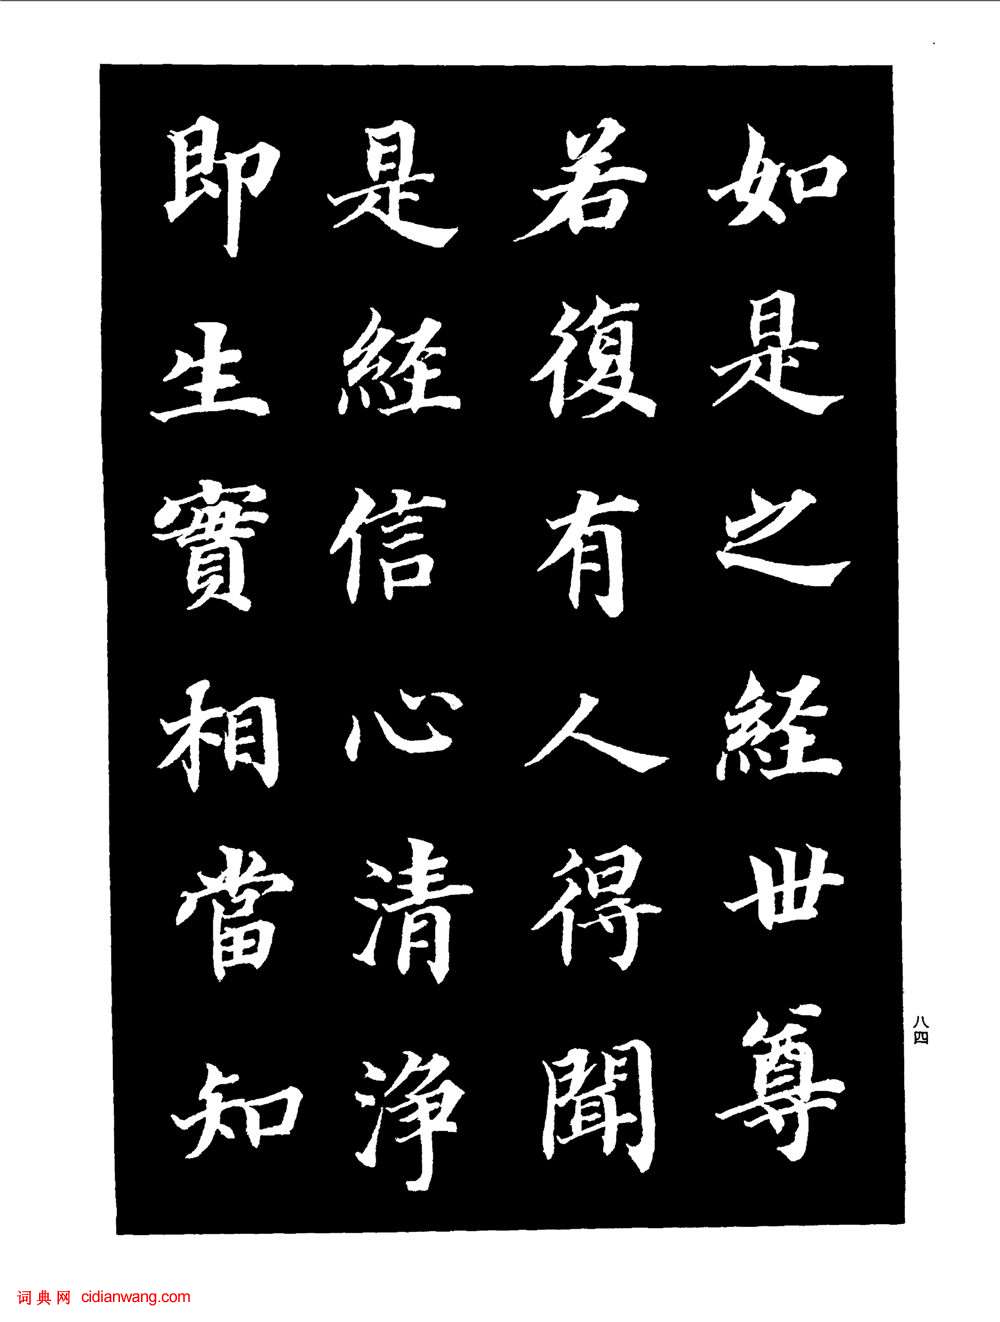 如是之経世尊
若復有人得聞
是経信心清淨
即生實相當知
八四
词典网 cidianwang.com